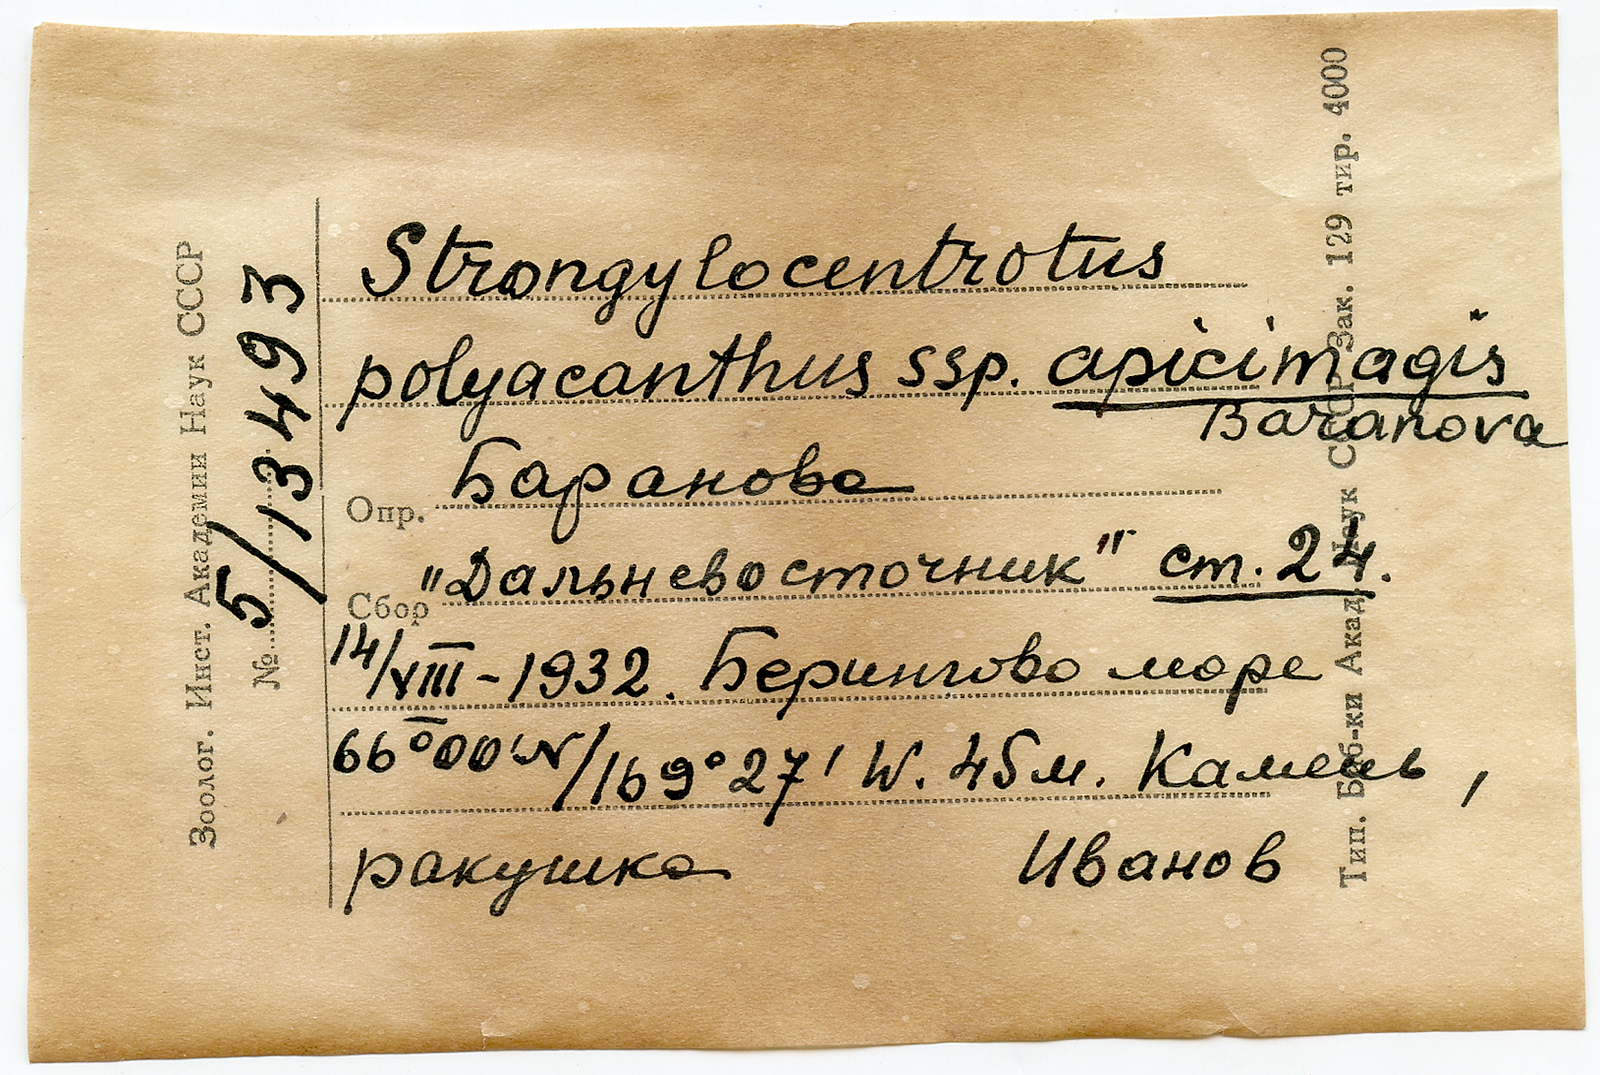 Зоолог. Инст. Академии Наук СССР
№ 5/13493
Strongylocentrotus
polyacanthus ssp. apicimagis
Baranova
Опр. Баранова
Сбор "Дальневосточник" ст. 24.
14/VIII-1932. Берингово море
66°00'N/169°27' W. 45м. Камень,
ракушка Иванов
Тип. Баб-ки Акад. Наук СССР Зак. 129 тир. 4000